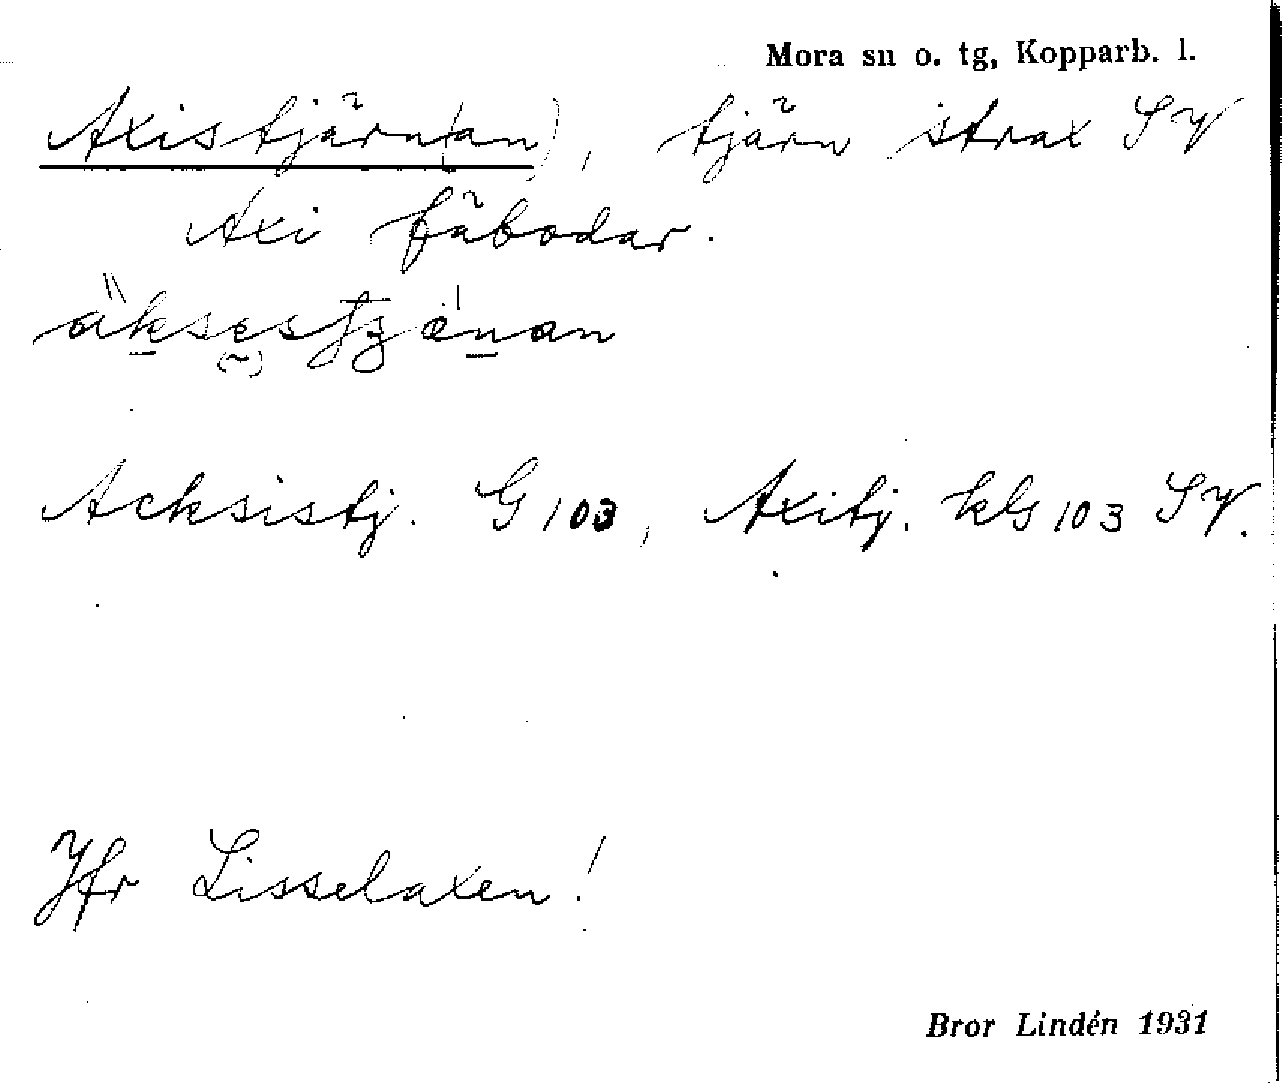 Mora sn o. tg, Kopparb. l.
Axistjärn(an), tjärn strax SV
Axi fäbodar.
Acksistj. G 103, Axitj. kG 103 SV.
Jfr Lisselaxen!
Bror Lindén 1931